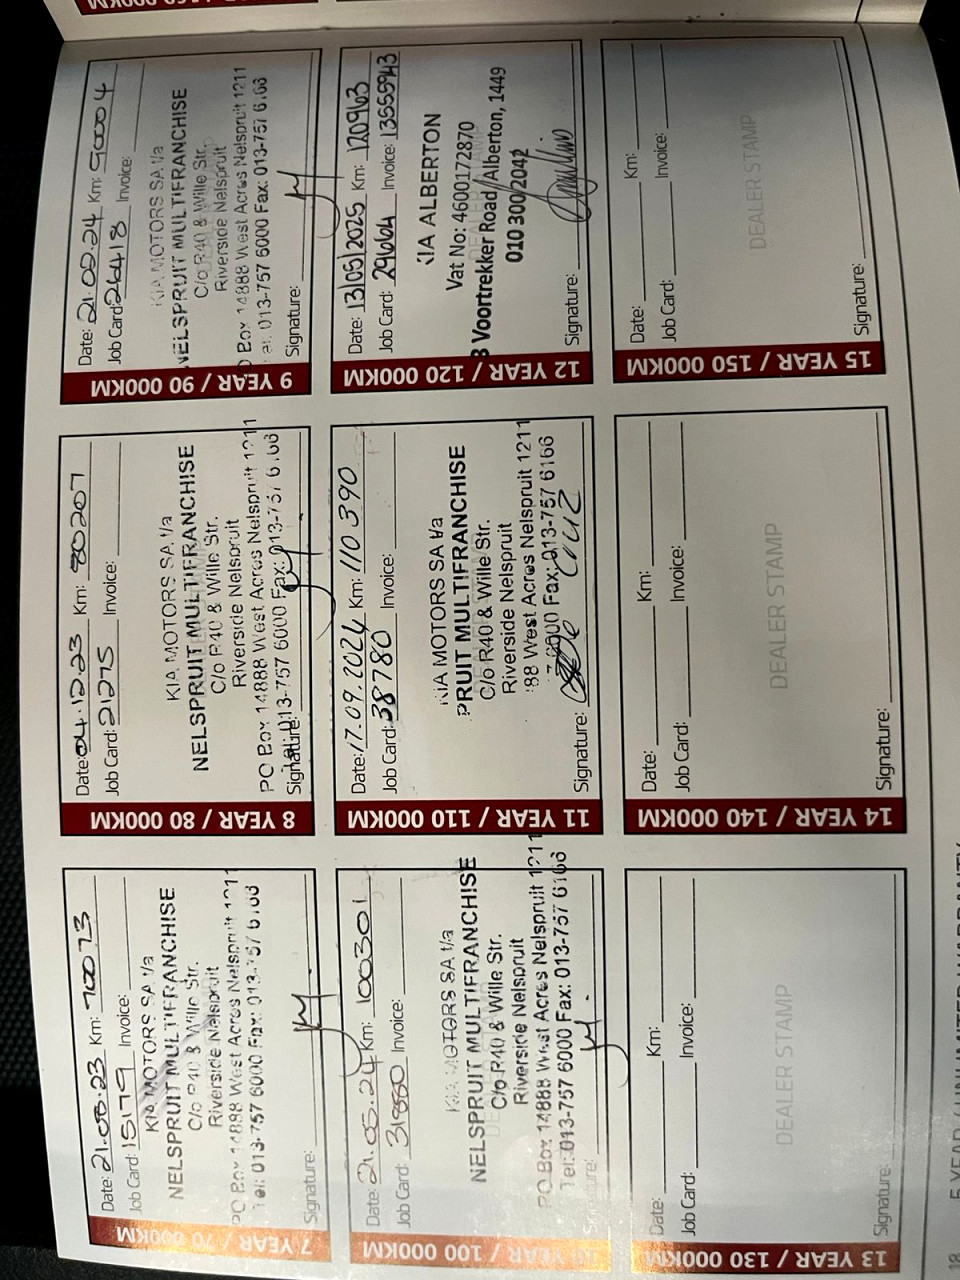 7 YEAR / 70 000KM
Date: 21.08.23 Km: 70073
Job Card: 15179 Invoice:
KIA MOTORS SA t/a
NELSPRUIT MULTIFRANCHISE
C/o R40 & Wille Str.
Riverside Nelspruit
PO Box 14888 West Acres Nelspruit 1211
Tel: 013-757 6000 Fax: 013-757 6166
Signature:
8 YEAR / 80 000KM
Date: 04.12.23 Km: 80207
Job Card: 21275 Invoice:
KIA MOTORS SA t/a
NELSPRUIT MULTIFRANCHISE
C/o R40 & Wille Str.
Riverside Nelspruit
PO Box 14888 West Acres Nelspruit 1211
013-757 6000 Fax: 013-757 6166
Signature:
9 YEAR / 90 000KM
Date: 21.02.24 Km: 90004
Job Card: 26418 Invoice:
KIA MOTORS SA t/a
NELSPRUIT MULTIFRANCHISE
C/o R40 & Wille Str.
Riverside Nelspruit
Box 14888 West Acres Nelspruit 1211
Tel: 013-757 6000 Fax: 013-757 6166
Signature:
YEAR / 100 000KM
Date: 21.05.24 Km: 100301
Job Card: 31880 Invoice:
KIA MOTORS SA t/a
NELSPRUIT MULTIFRANCHISE
C/o R40 & Wille Str.
Riverside Nelspruit
PO Box 14888 West Acres Nelspruit 1211
Tel: 013-757 6000 Fax: 013-757 6166
Signature:
11 YEAR / 110 000KM
Date: 17.09.2024 Km: 110 390
Job Card: 38780 Invoice:
KIA MOTORS SA t/a
PRUIT MULTIFRANCHISE
C/o R40 & Wille Str.
Riverside Nelspruit
88 West Acres Nelspruit 1211
6000 Fax: 013-757 6166
Signature: De Cruz
12 YEAR / 120 000KM
Date: 13/05/2025 Km: 120963
Job Card: 29664 Invoice: 13555943
KIA ALBERTON
Vat No: 4600172870
3 Voortrekker Road, Alberton, 1449
010 300 2042
Signature:
13 YEAR / 130 000KM
Date: Km:
Job Card: Invoice:
DEALER STAMP
Signature:
14 YEAR / 140 000KM
Date: Km:
Job Card: Invoice:
DEALER STAMP
Signature:
15 YEAR / 150 000KM
Date: Km:
Job Card: Invoice:
DEALER STAMP
Signature:
18